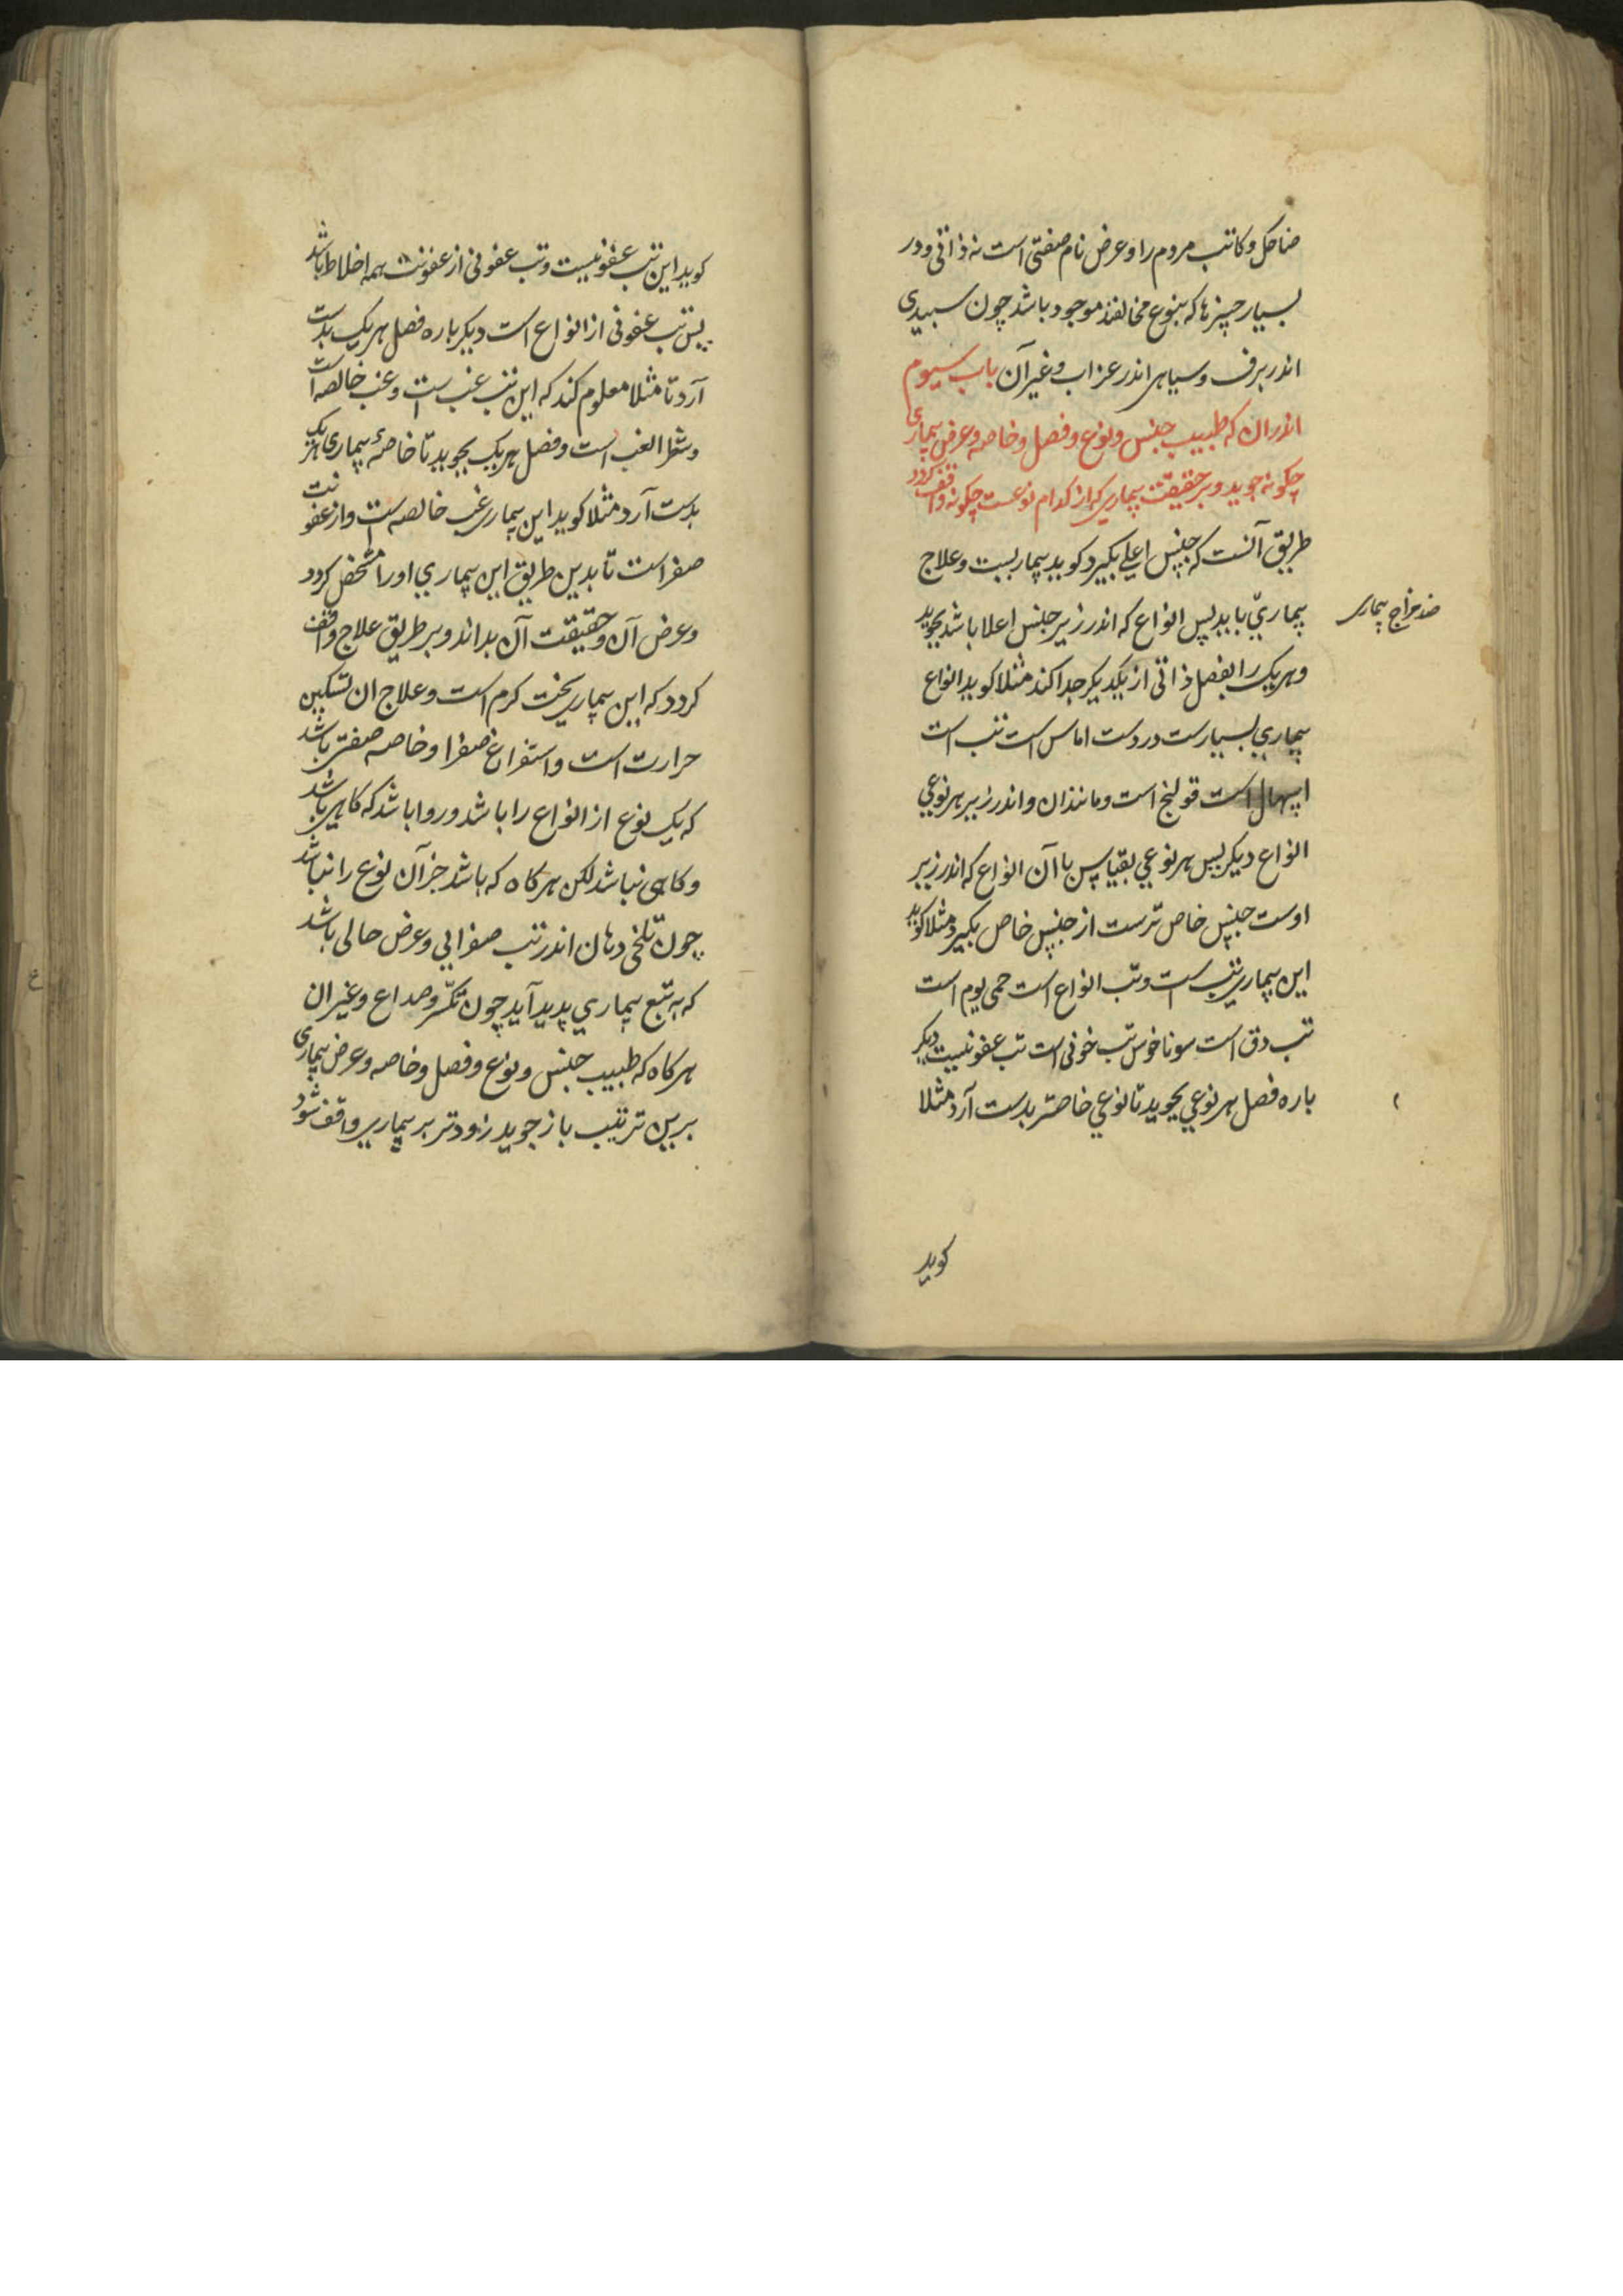 ضاحک و کاتب مردم را و عرض نام صفتی است نه ذاتی و در
بسیار چیزها که بنوع مخالفند موجود باشد چون سبیدی
اندر برف و سیاهی اندر عزاب و غیر آن باب سیوم
اندران که طبیب جنس و نوع و فصل و خاصه و عرض بیماری
چکونه جوید و بر حقیقت بیماری که از کدام نوعست چکونه واقف کردد
طریق آنست که جنس اعلی بکیرد کوید بیماریست و علاج
بیماری باید پس انواع که اندر زیر جنس اعلا باشد بجوید
ضد مزاج بیماری
و هریک را بفصل ذاتی از یکدیکر جدا کند مثلا کوید انواع
بیماری بسیارست دردست اماس است تب است
اسهال است قولنج است و مانند ان و اندر زیر هر نوعی
انواع دیکر پس هر نوعی بقیاس باآن انواع که اندر زیر
اوست جنس خاص ترست از جنس خاص بکیرد مثلا کوید
این بیماری تب است و تب انواع است حمی یوم است
تب دق است سوناخوس تب خونی است تب عفونیست دیکر
باره فصل هر نوعی بجوید تا نوعی خاصتر بدست آرد مثلا
کوید
کوید این تب عفونیست و تب عفونی از عفونت همه اخلاط باشد
پس تب عفونی از انواع است دیکر باره فصل هریک بدست
آرد تا مثلا معلوم کند که این تب غب است و غب خالصه است
و شطر الغب است و فصل هریک بجوید تا خاصهٔ بیماری هریک
بدست آرد مثلا کوید این بیماری غب خالصه است و از عفونت
صفراست تا بدین طریق این بیماری او را مشخص کردد
و عرض آن و حقیقت آن بداند و بر طریق علاج واقف
کردد که این بیماری سخت کرم است و علاج ان تسکین
حرارت است و استفراغ صفرا و خاصه صفتی باشد
که یک نوع از انواع را باشد و روا باشد که کاهی باشد
و کاهی نباشد لکن هرکاه که باشد جز آن نوع را نباشد
چون تلخی دهان اندر تب صفرایی و عرض حالی باشد
که به تبع بیماری پدید آید چون تکسر و صداع و غیر ان
هرکاه که طبیب جنس و نوع و فصل و خاصه و عرض بیماری
برین ترتیب باز جوید زودتر بر بیماری واقف شود